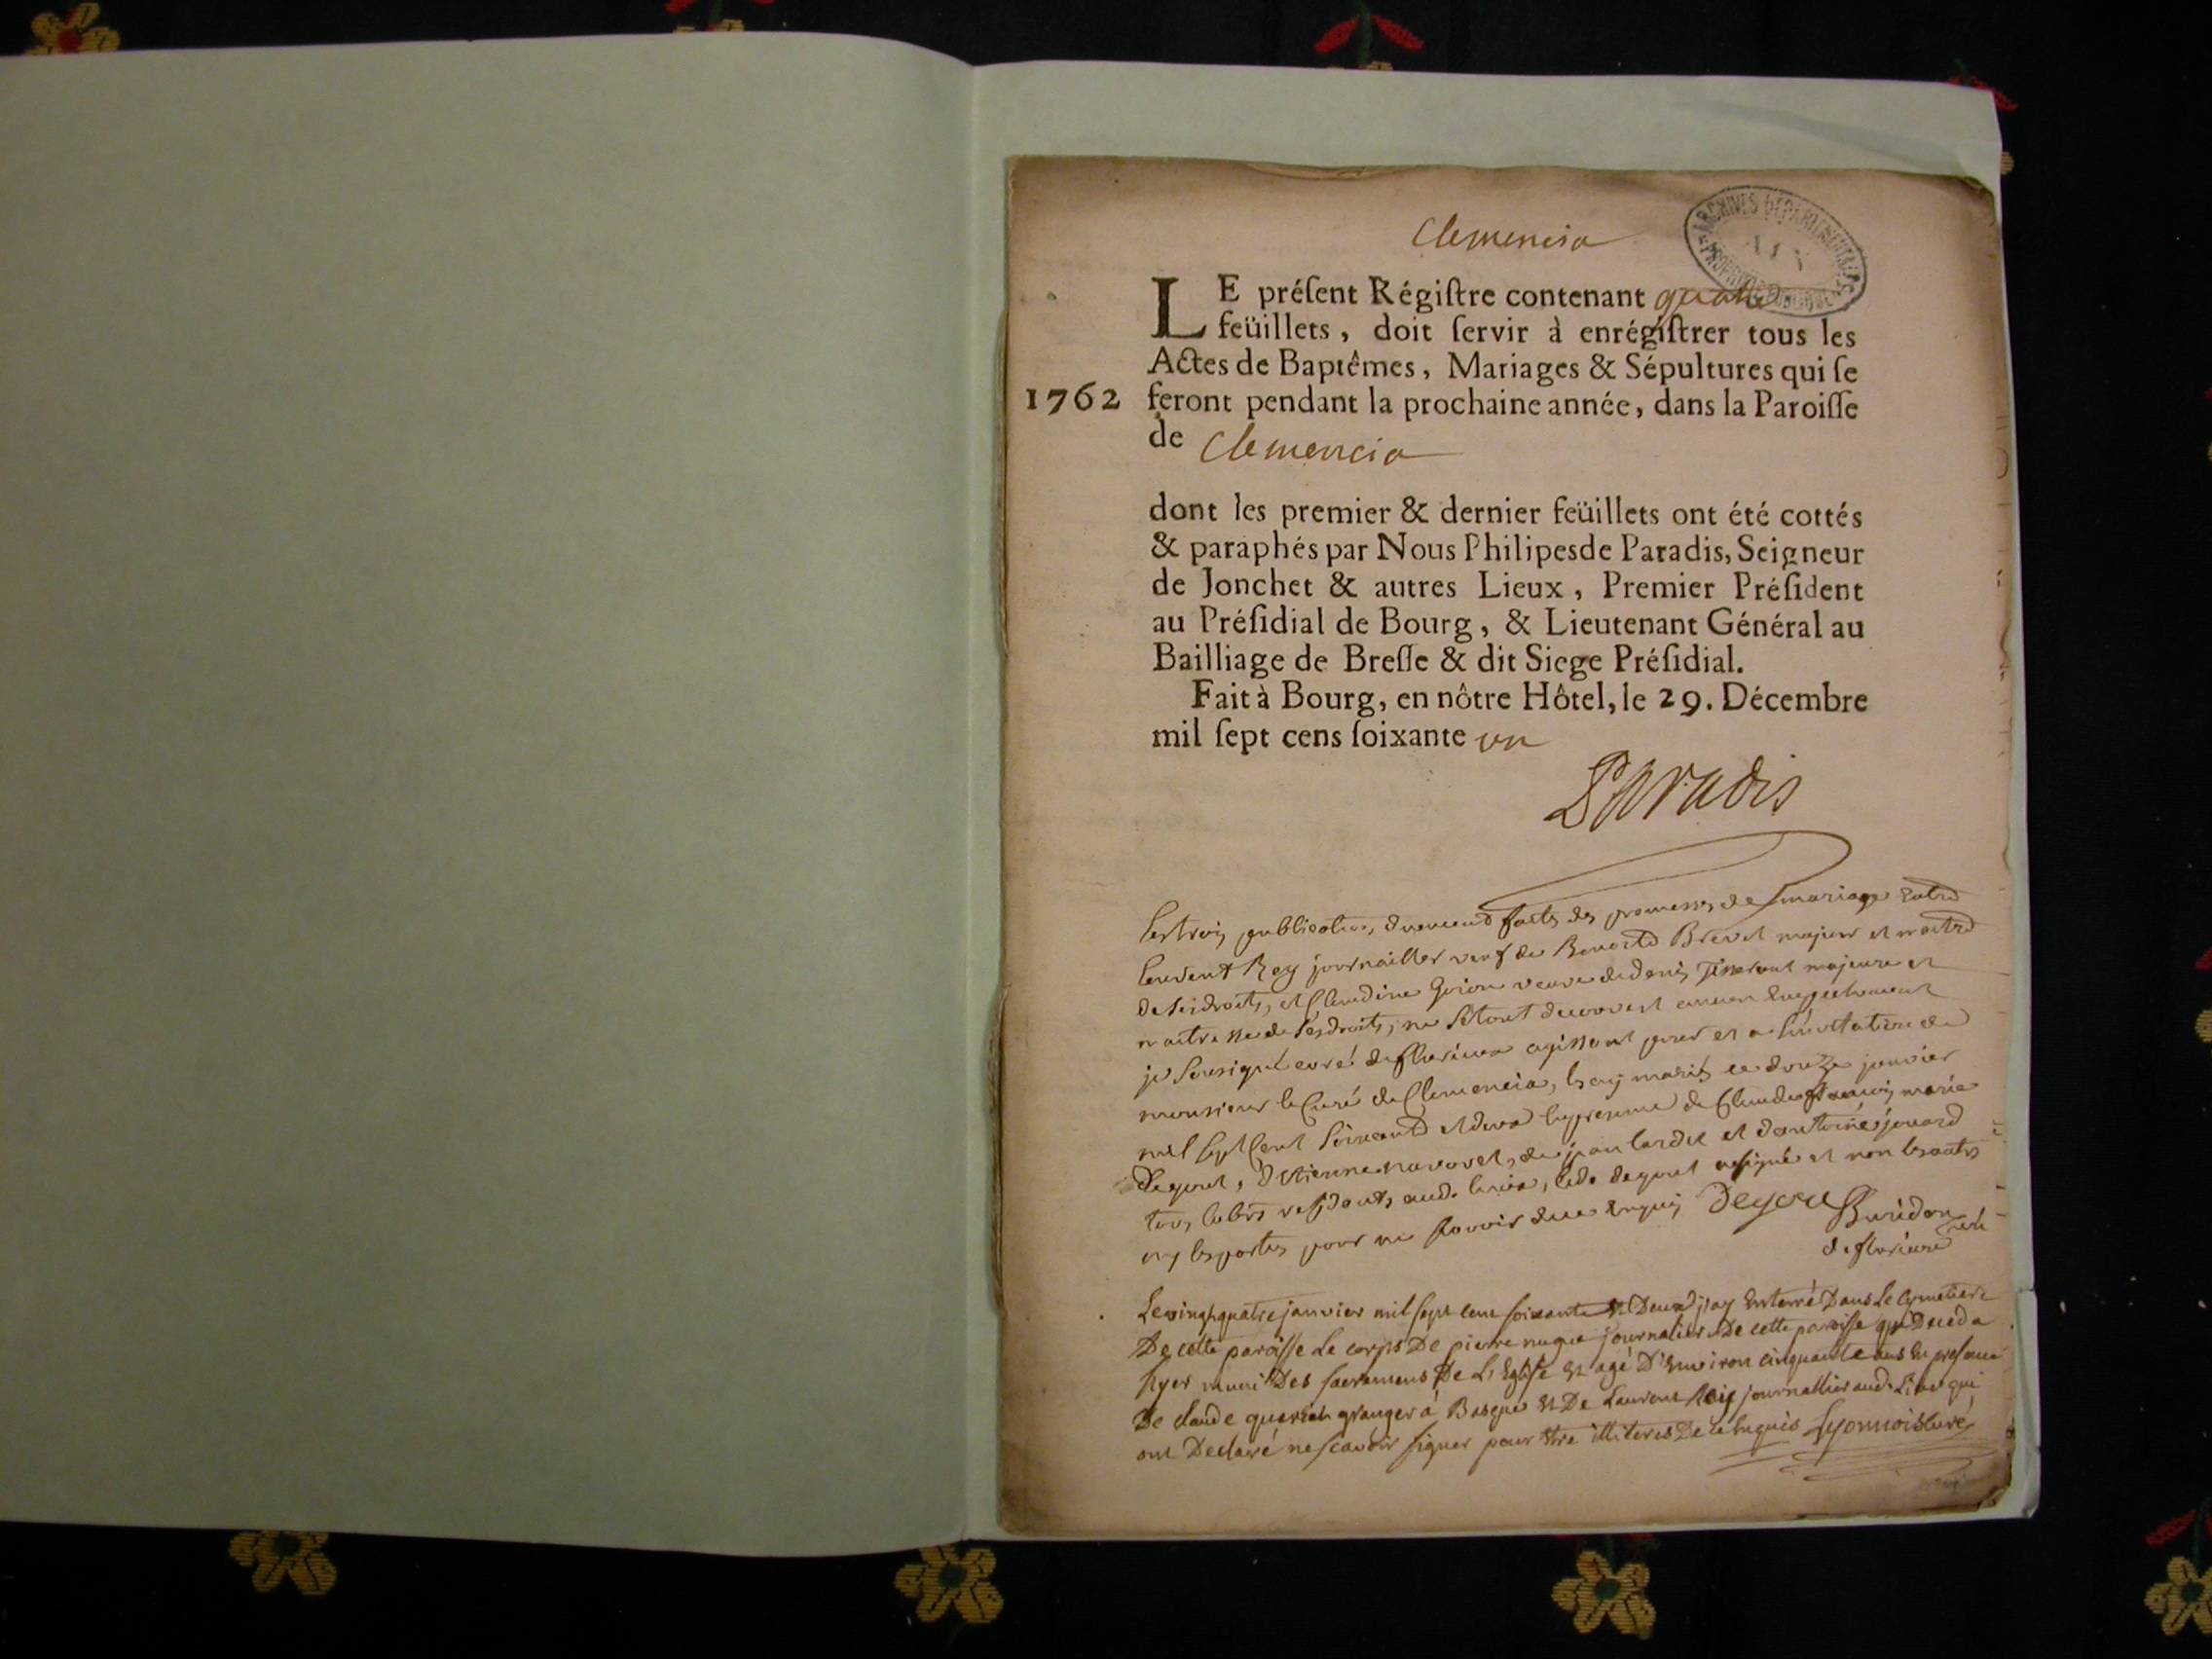 Clemencia
ARCHIVES DEPARTEMENTALES
AIN
LE présent Régistre contenant quatre
feüillets, doit servir à enrégistrer tous les
Actes de Baptêmes, Mariages & Sépultures qui se
1762 feront pendant la prochaine année, dans la Paroisse
de Clemencia
dont les premier & dernier feüillets ont été cottés
& paraphés par Nous Philipes de Paradis, Seigneur
de Jonchet & autres Lieux, Premier Président
au Présidial de Bourg, & Lieutenant Général au
Bailliage de Bresse & dit Siege Présidial.
Fait à Bourg, en nôtre Hôtel, le 29. Décembre
mil sept cens soixante un
Paradis
les trois publications duement faites des promesses de mariage entre
laurent Rey journallier veuf de Benoite Brevet majeur et maitre
de ses droits, et Claudine veuve de denis Tisserant majeure et
maitresse de ses droits, ne s'etant decouvert aucun empechement
je sousigné curé de fleurieux agissant pour et a l'invitation de
monsieur le Curé de Clemencia, les ay mariés ce douze janvier
mil sept Cent soixante et deux en presence de Claude françois marie
Degout, d'Etienne de jean lardet et d'antoine jouard
tous labrs residants aud. lieu, led. degout a signé et non les autres
ny les parties pour ne sçavoir de ce enquis Degout Buridon curé
de fleurieux
Le vingt quatre janvier mil sept cent soixante et Deux j'ay Enterré Dans Le Cymetiere
De cette paroisse Le corps De pierre nugue journalier De cette paroisse qui Deceda
hyer muni Des sacremens De L'Eglise et agé D'Environ cinquante ans En presence
De claude granger a et De Laurent Rey journallier aud. Lieu qui
ont Declaré ne sçavoir signer pour être illiteres De ce Enquis Lyonnois curé